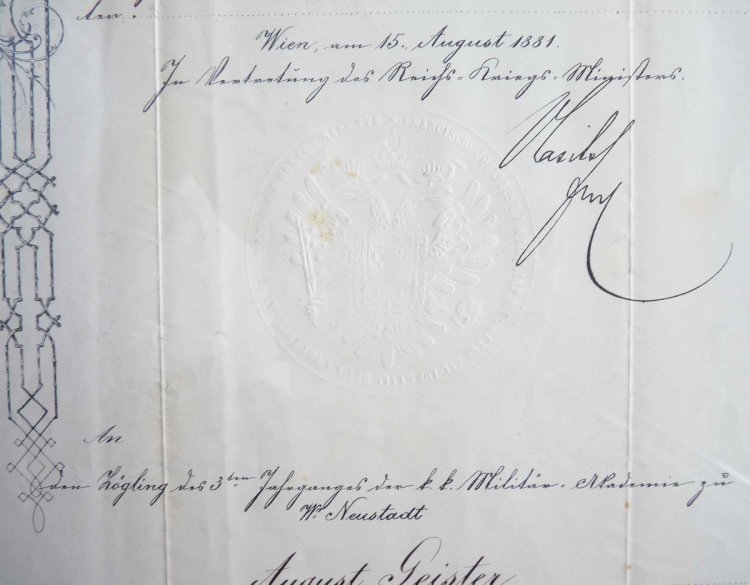 ten.
Wien, am 15. August 1881.
In Vertretung des Reichs-Kriegs-Ministers.
An
den Zögling des 3ten Jahrganges der k. k. Militär-Akademie zu
Wr Neustadt
August Geister